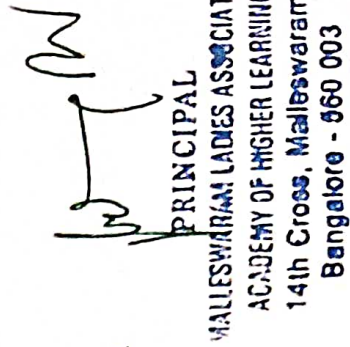 PRINCIPAL
MALLESWARAM LADIES ASSOCIAT
ACADEMY OF HIGHER LEARNING
14th Cross, Malleswaram
Bangalore - 560 003